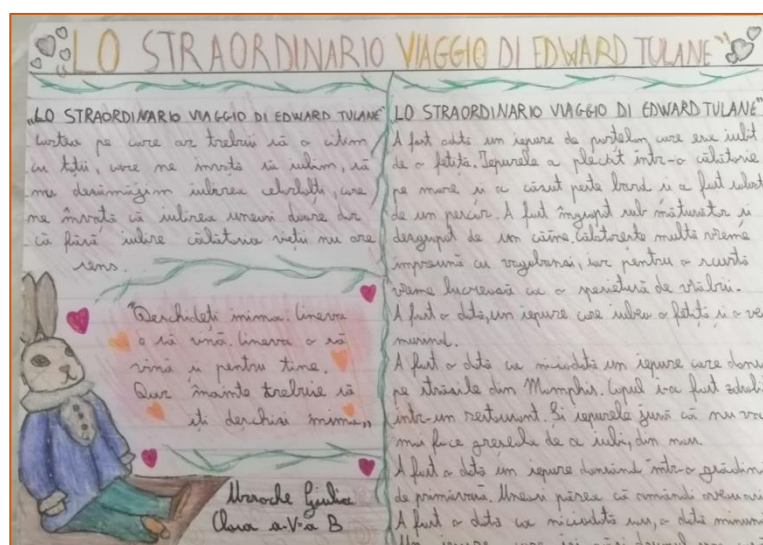 LO STRAORDINARIO VIAGGIO DI EDWARD TULANE"
„LO STRAORDINARIO VIAGGIO DI EDWARD TULANE"
Cartea pe care ar trebui să o citim
cu toții, care ne învață să iubim, să
nu dezamăgim iubirea celorlalți, care
ne învață că iubirea uneori doare dar
că fără iubire călătoria vieții nu are
sens.
"Deschideți inima. Cineva
o să vină. Cineva o să
vină și pentru tine.
Dar înainte trebuie să
îți deschizi inima„
Giulia
Clasa a-V-a B
LO STRAORDINARIO VIAGGIO DI EDWARD TULANE"
A fost odată un iepure de porțelan care era iubit
de o fetiță. Iepurele a plecat într-o călătorie
pe mare și a căzut peste bord și a fost
de un pescar. A fost îngropat sub și
dezgropat de un câine. Călătorește multă vreme
împreună cu vagabonzi, iar pentru o scurtă
vreme lucrează ca o sperietoare de vrăbii.
A fost o dată, un iepure care iubea o fetiță și a
murind.
A fost o dată ca niciodată un iepure care
pe străzile din Memphis. Capul i-a fost
într-un restaurant. Și iepurele jură că nu
mai face greșeala de a iubi, din nou.
A fost o dată un iepure dansând într-o
de primăvară. Uneori părea că
A fost o dată ca niciodată
Un iepure care